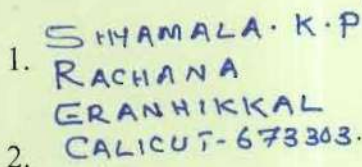 1. SHYAMALA. K. P
RACHANA
ERANHIKKAL
2. CALICUT-673303.